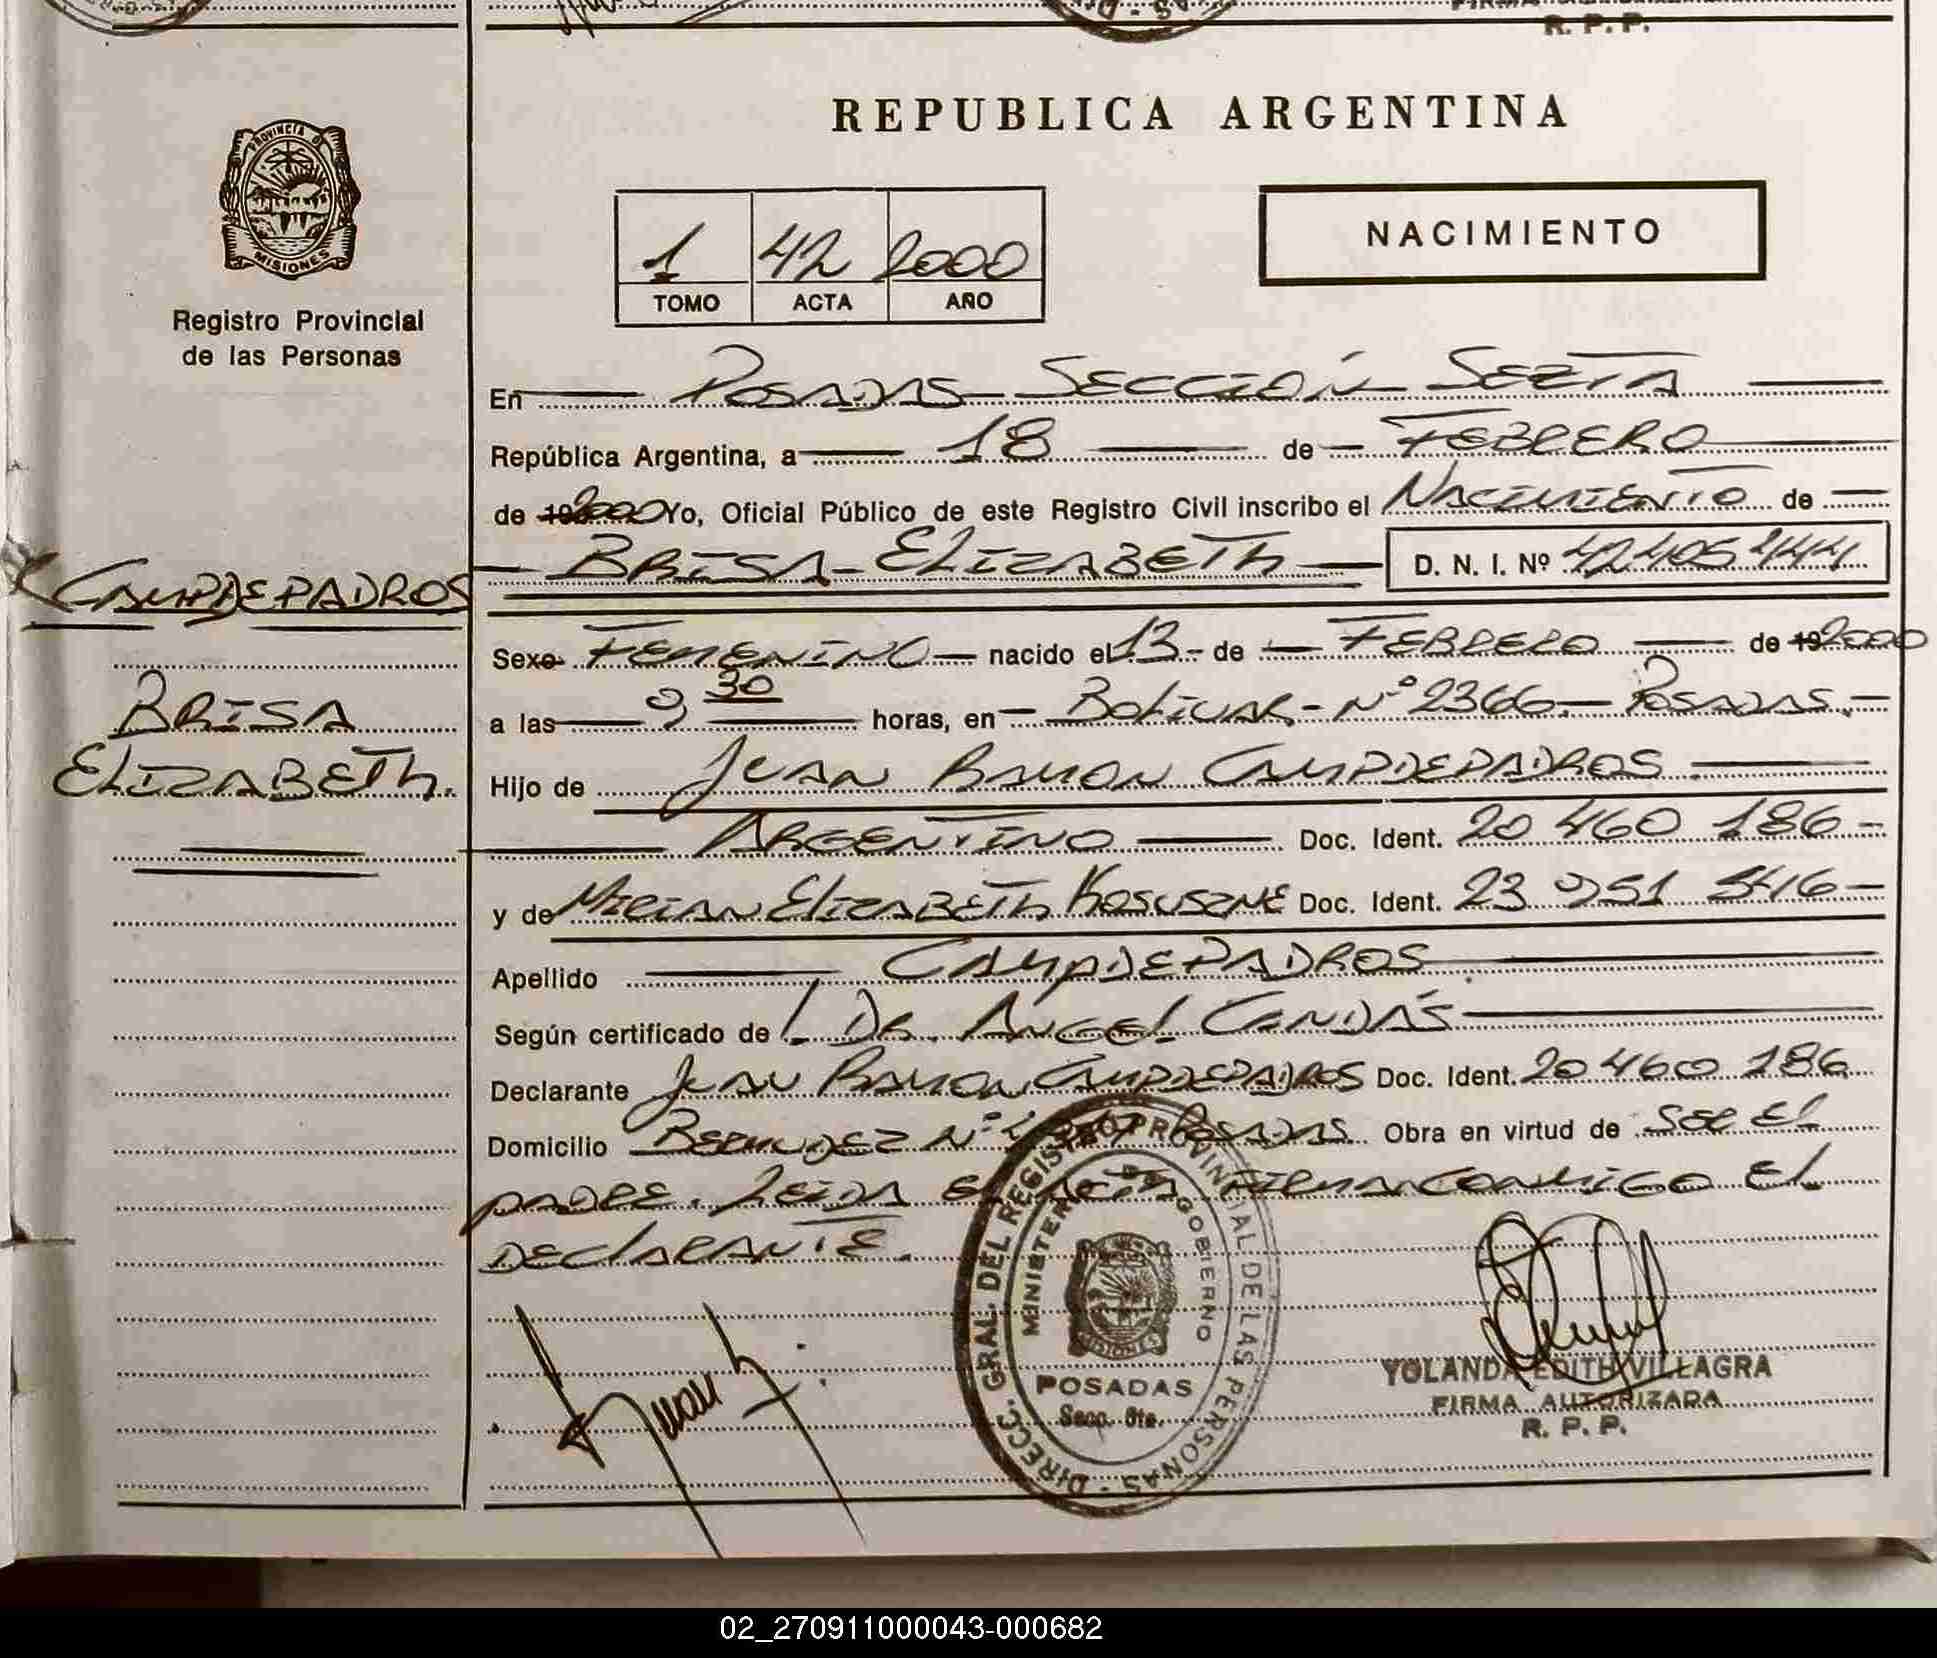 R. P. P.
PROVINCIA DE
MISIONES
Registro Provincial
de las Personas
REPUBLICA ARGENTINA
NACIMIENTO
1 42 2000
TOMO ACTA AÑO
En POSADAS SECCIÓN SEXTA
República Argentina, a 18 de FEBRERO
de 2000 Yo, Oficial Público de este Registro Civil inscribo el NACIMIENTO de
BRISA ELIZABETH D. N. I. Nº 42.405.444
CAMPDEPADROS
BRISA
ELIZABETH.
Sexo FEMENINO nacido el 13 de FEBRERO de 2000
a las 9,30 horas, en BOLIVAR - Nº 2366. POSADAS.
Hijo de JUAN RAMON CAMPDEPADROS
ARGENTINO Doc. Ident. 20 460 186
y de MIRIAN ELIZABETH Doc. Ident. 23 951 546
Apellido CAMPDEPADROS
Según certificado de : DR. ANGEL CENDÁS
Declarante JUAN RAMON CAMPDEPADROS Doc. Ident. 20 460 186
Domicilio BERMUDEZ Nº POSADAS Obra en virtud de SER EL
PADRE. LEIDA EL ACTA FIRMA CONMIGO EL
DECLARANTE.
DIRECC. GRAL. DEL REGISTRO PROVINCIAL DE LAS PERSONAS
MINISTERIO DE GOBIERNO
MISIONES
POSADAS
Secc. 6ta.
YOLANDA EDITH VILLAGRA
FIRMA AUTORIZADA
R. P. P.
02_270911000043-000682